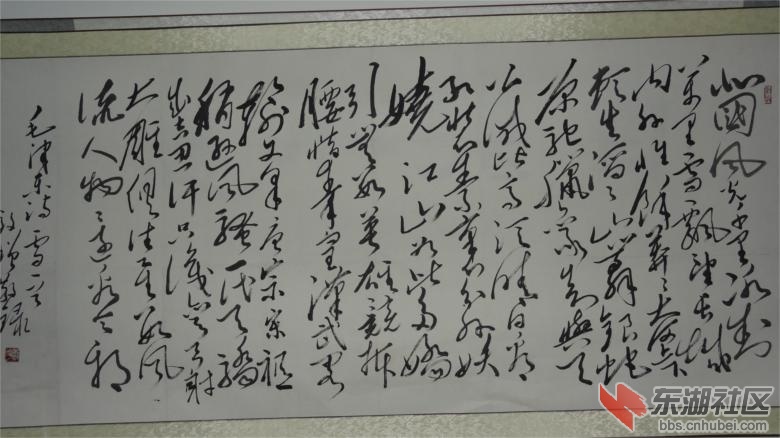 北國风光千里冰封
萬里雪飘望长城
内外惟餘莽々大河上下
顿失滔々山舞银蛇
原驰臘象欲與天
公试比高须晴日看
红装素裹分外妖
娆江山如此多嬌
引無数英雄竞折
腰惜秦皇漢武略
输文采唐宗宋祖
稍逊风骚一代天骄
成吉思汗只識弯弓射
大雕俱往矣数风
流人物还看今朝
毛泽东诗雪一首
录
东湖社区
bbs.cnhubei.com